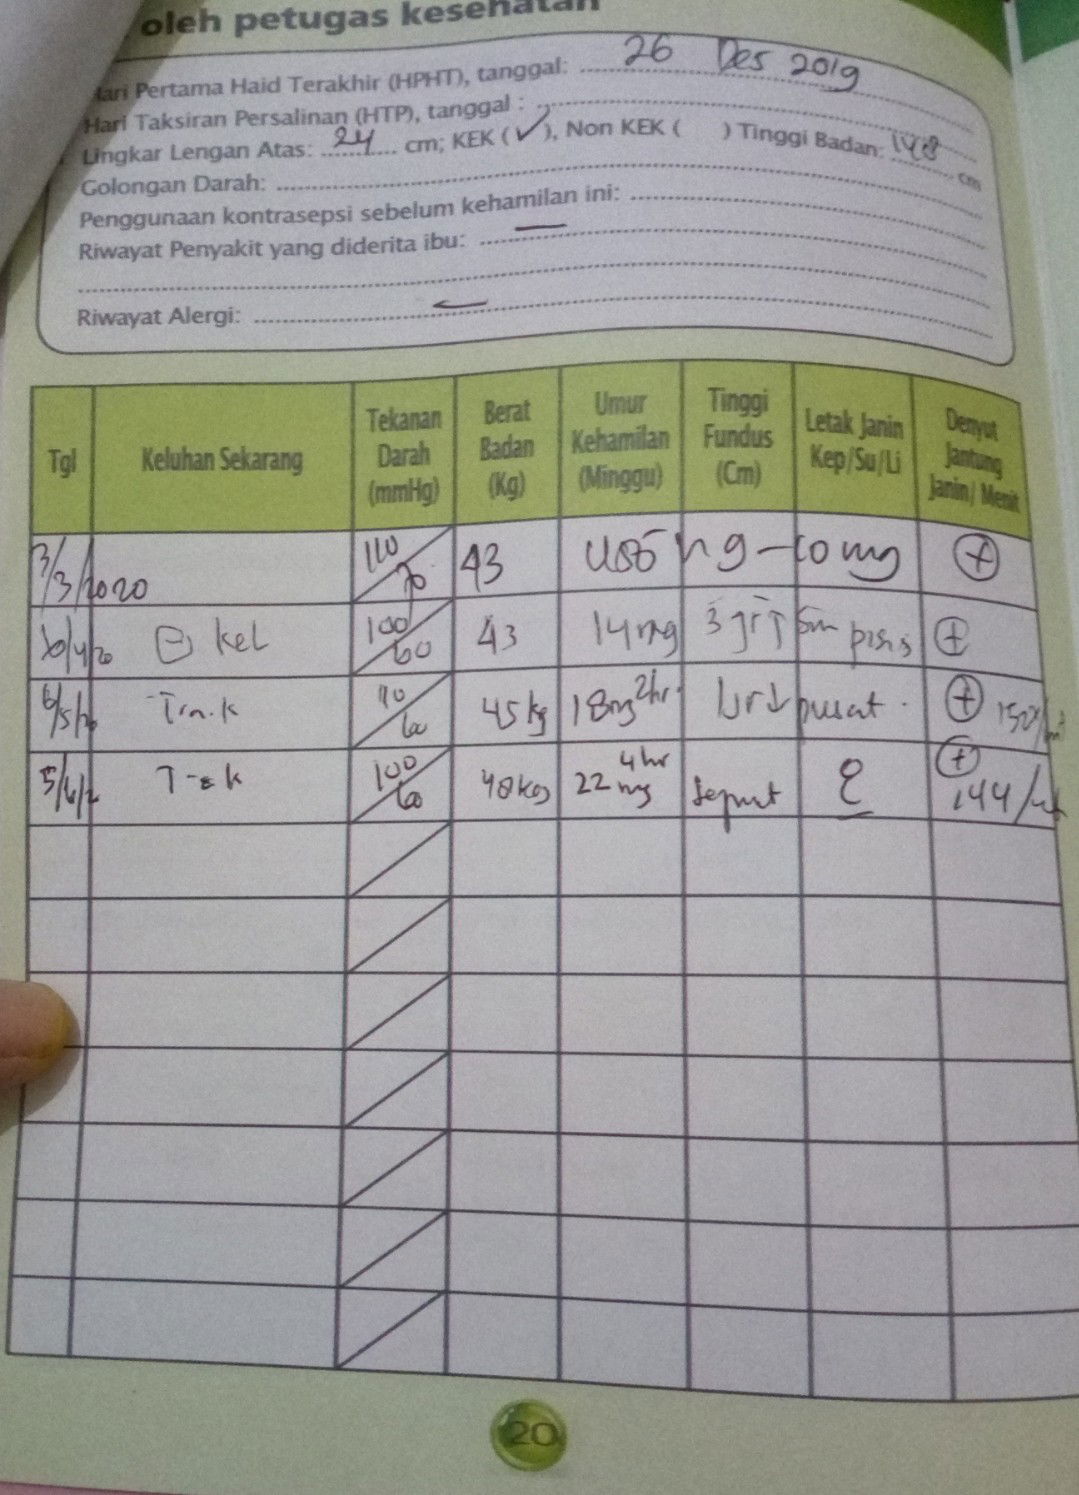 oleh petugas kesehatan
Hari Pertama Haid Terakhir (HPHT), tanggal: 26 Des 2019
Hari Taksiran Persalinan (HTP), tanggal :
Lingkar Lengan Atas: 24 cm; KEK ( ✓ ), Non KEK ( ) Tinggi Badan: 148 cm
Golongan Darah:
Penggunaan kontrasepsi sebelum kehamilan ini:
Riwayat Penyakit yang diderita ibu: —
Riwayat Alergi: —
Tgl Keluhan Sekarang Tekanan Darah (mmHg) Berat Badan (Kg) Umur Kehamilan (Minggu) Tinggi Fundus (Cm) Letak Janin Kep/Su/Li Denyut Jantung Janin/ Menit
3/3/2020 110/70 43 9-10 mg (+)
(-) kel 100/60 43 14 mg 3 jr (+)
6/5/20 45 kg 18 mg 2hr pusat (+) 150
5/6/2 100/60 48 kg 22 mg 4 hr (+) 144
20